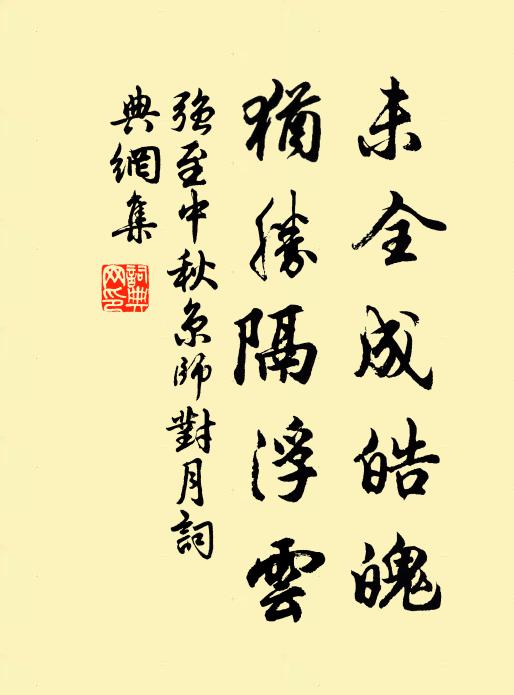 未全成皓魄
猶勝隔浮雲
強至中秋京師對月詞
典網集
詞典網印